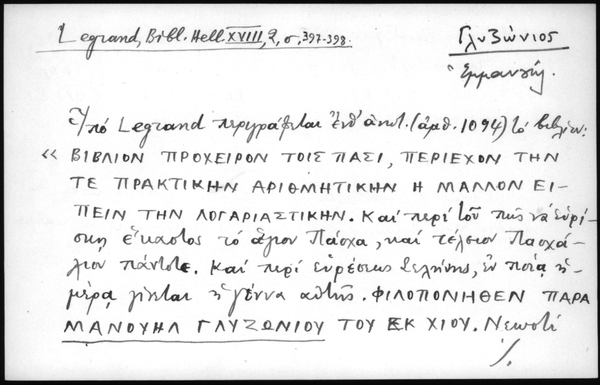 Legrand, Bibl. Hell. XVIII, 2, σ. 397-398.
Γλυζώνιος
Ἐμμανουήλ.
Ὑπό Legrand περιγράφεται ἐνθ' ἀνωτ. (ἀριθ. 1094) τό βιβλίον:
« ΒΙΒΛΙΟΝ ΠΡΟΧΕΙΡΟΝ ΤΟΙΣ ΠΑΣΙ, ΠΕΡΙΕΧΟΝ ΤΗΝ
ΤΕ ΠΡΑΚΤΙΚΗΝ ΑΡΙΘΜΗΤΙΚΗΝ Η ΜΑΛΛΟΝ ΕΙ-
ΠΕΙΝ ΤΗΝ ΛΟΓΑΡΙΑΣΤΙΚΗΝ. Καί περί τοῦ πῶς νά εὑρί-
σκῃ ἕκαστος τό ἅγιον Πάσχα, καί τέλειον Πασχά-
λιον πάντοτε. Καί περί εὑρέσεως Σελήνης, ἐν ποίᾳ ἡ-
μέρᾳ γίνεται ἡ γέννα αὐτῆς. ΦΙΛΟΠΟΝΗΘΕΝ ΠΑΡΑ
ΜΑΝΟΥΗΛ ΓΛΥΖΩΝΙΟΥ ΤΟΥ ΕΚ ΧΙΟΥ. Νεωστί
./.